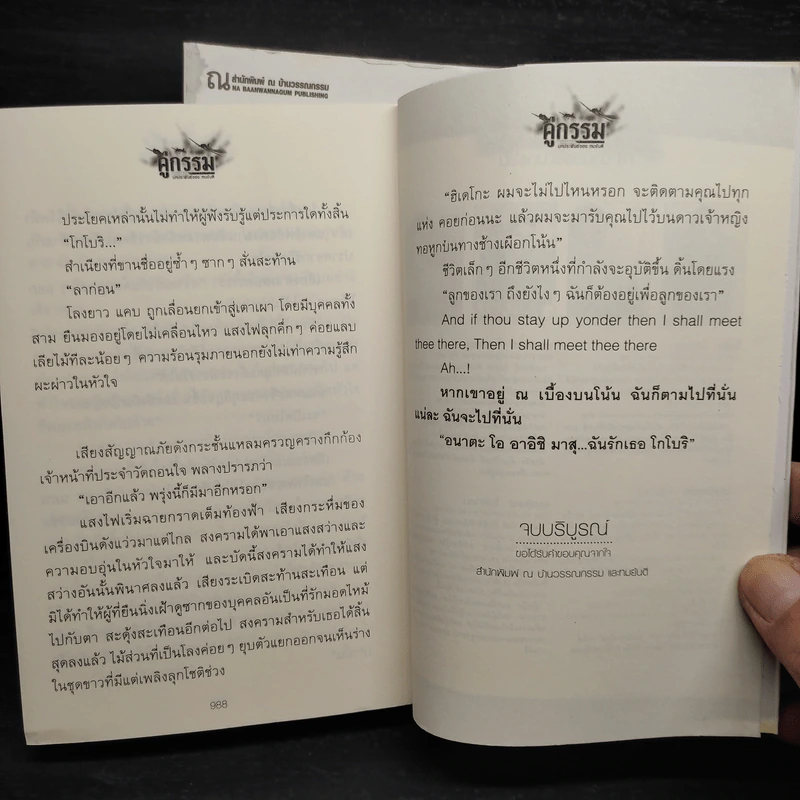 ณ สำนักพิมพ์ ณ บ้านวรรณกรรม
NA BAANWANNAGUM PUBLISHING
คู่กรรม
บทประพันธ์ของ ทมยันตี
ประโยคเหล่านั้นไม่ทำให้ผู้ฟังรับรู้แต่ประการใดทั้งสิ้น
“โกโบริ...”
สำเนียงที่ขานชื่ออยู่ซ้ำๆ ซากๆ สั่นสะท้าน
“ลาก่อน”
โลงยาว แคบ ถูกเลื่อนยกเข้าสู่เตาเผา โดยมีบุคคลทั้ง
สาม ยืนมองอยู่โดยไม่เคลื่อนไหว แสงไฟลุกคึ่กๆ ค่อยแลบ
เลียไม้ทีละน้อยๆ ความร้อนรุมภายนอกยังไม่เท่าความรู้สึก
ผะผ่าวในหัวใจ
เสียงสัญญาณภัยดังกระชั้นแหลมครวญครางกึกก้อง
เจ้าหน้าที่ประจำวัดถอนใจ พลางปรารภว่า
“เอาอีกแล้ว พรุ่งนี้ก็มีมาอีกหรอก”
แสงไฟเริ่มฉายกราดเต็มท้องฟ้า เสียงกระหึ่มของ
เครื่องบินดังแว่วมาแต่ไกล สงครามได้พาเอาแสงสว่างและ
ความอบอุ่นในหัวใจมาให้ และบัดนี้สงครามได้ทำให้แสง
สว่างอันนั้นพินาศลงแล้ว เสียงระเบิดสะท้านสะเทือน แต่
มิได้ทำให้ผู้ที่ยืนนิ่งเฝ้าดูซากของบุคคลอันเป็นที่รักมอดไหม้
ไปกับตา สะดุ้งสะเทือนอีกต่อไป สงครามสำหรับเธอได้สิ้น
สุดลงแล้ว ไม้ส่วนที่เป็นโลงค่อยๆ ยุบตัวแยกออกจนเห็นร่าง
ในชุดขาวที่มีแต่เพลิงลุกโชติช่วง
988
คู่กรรม
บทประพันธ์ของ ทมยันตี
“ฮิเดโกะ ผมจะไม่ไปไหนหรอก จะติดตามคุณไปทุก
แห่ง คอยก่อนนะ แล้วผมจะมารับคุณไปไว้บนดาวเจ้าหญิง
ทอหูกบนทางช้างเผือกโน้น”
ชีวิตเล็กๆ อีกชีวิตหนึ่งที่กำลังจะอุบัติขึ้น ดิ้นโดยแรง
“ลูกของเรา ถึงยังไงๆ ฉันก็ต้องอยู่เพื่อลูกของเรา”
And if thou stay up yonder then I shall meet
thee there, Then I shall meet thee there
Ah...!
หากเขาอยู่ ณ เบื้องบนโน้น ฉันก็ตามไปที่นั่น
แน่ละ ฉันจะไปที่นั่น
“อนาตะ โอ อาอิชิ มาสุ...ฉันรักเธอ โกโบริ”
จบบริบูรณ์
ขอได้รับคำขอบคุณจากใจ
สำนักพิมพ์ ณ บ้านวรรณกรรม และทมยันตี